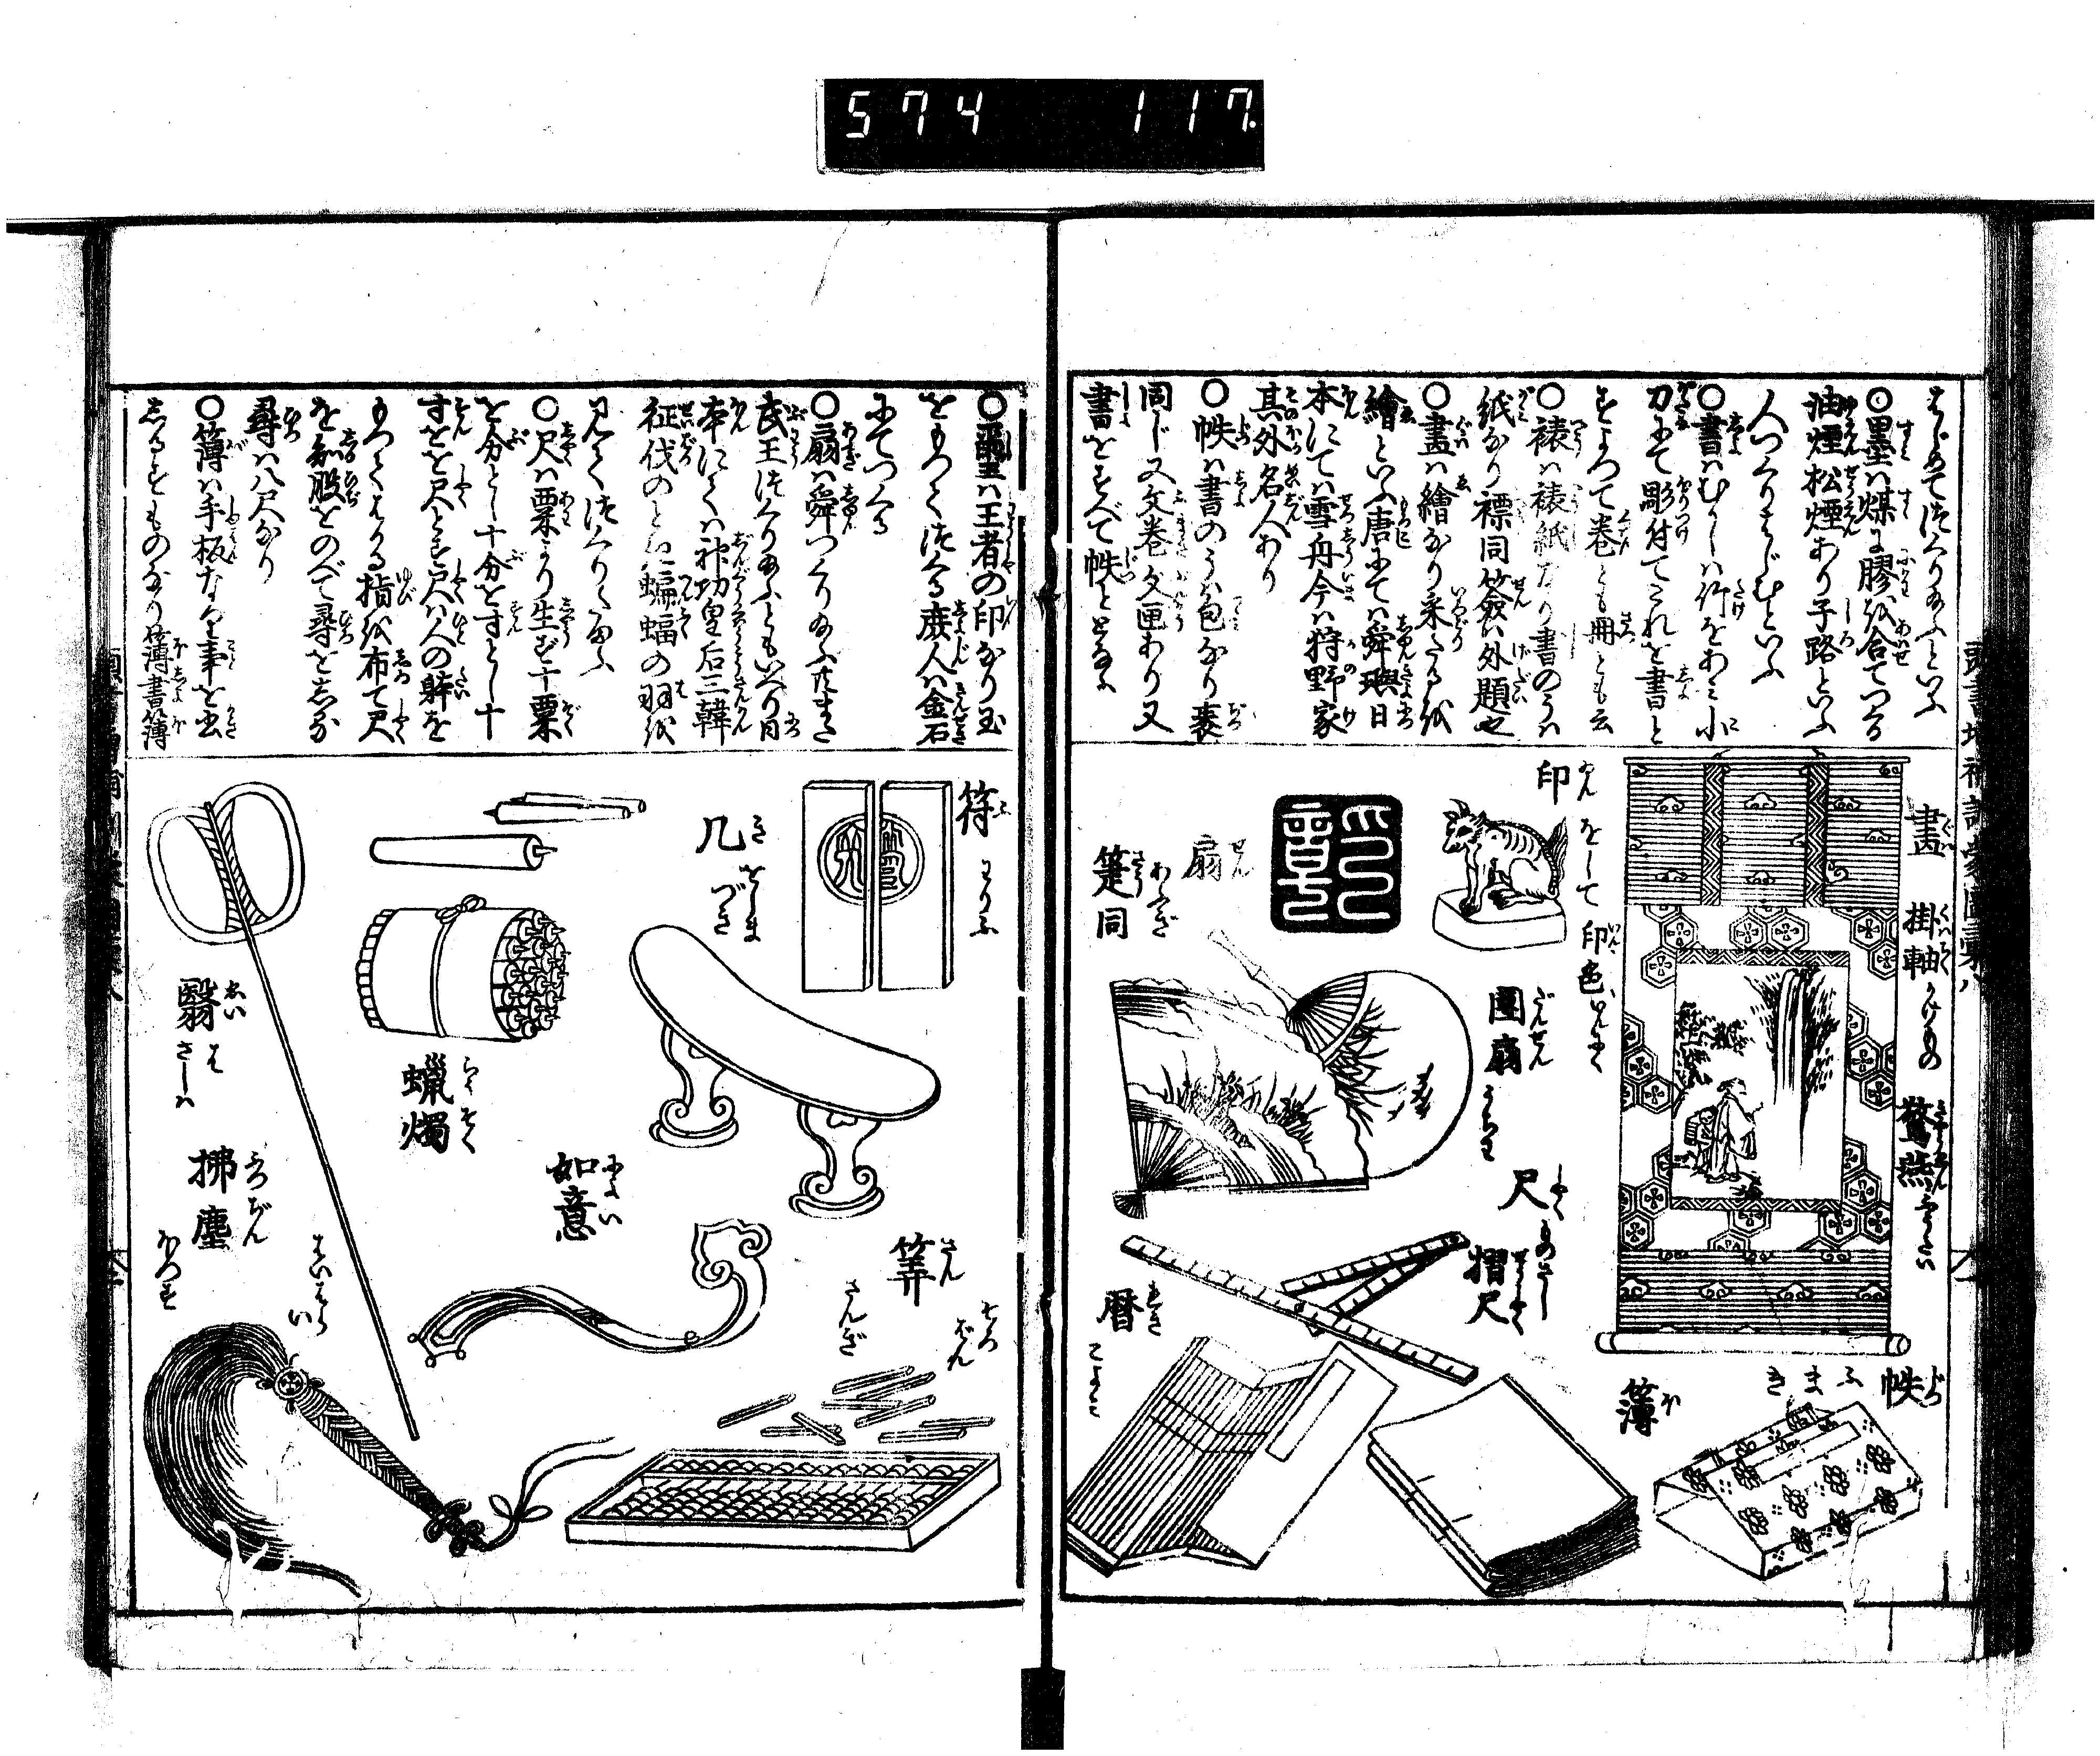 574 117.
はじめて漢くりたまふといふ
〇墨ハ煤に膠を合てつくる
油煙松煙あり子路といふ
人つくりはじむといふ
〇書ハむかしハ竹をあミ小
刀にて彫付てこれを書と
すよつて巻とも冊とも云
〇裱ハ裱紙なり書のうハ
紙なり標同簽ハ外題也
〇畫ハ繪なり采たるを
繪といふ唐にてハ舜與日
本にてハ雪舟今ハ狩野家
其外名人あり
〇帙ハ書のうハ包なり袠
同じ又文巻文匣あり又
書をすべて帙となふ
畫 ぐハ
掛軸 かけもの
驚燕 ふうたい
印 をして
印色 いんにく
團扇 うちわ
扇 せん あふぎ
箑同
尺 しやく ものさし
摺尺
暦 れき こよミ
簿 ぼ
帙 ぢつ ふまき
〇璽ハ王者の印なり玉
をもつてつくる庶人ハ金石
にてつくる
〇扇ハ舜つくりたまふ
武王つくりたまふともいへり日
本にてハ神功皇后三韓
征伐のとき蝙蝠の羽を
見てつくりたまふ
〇尺ハ粟より生ず十粟
を分とし十分を寸とし十
寸を尺とす尺ハ人の躰を
もつてはかる指を布て尺
を知肱をのべて尋をしる
尋ハ八尺なり
〇簿ハ手板なり事を書
しるすものなり簿書簿
符 ふ わりふ
几 き をしまづき
蠟燭 らうそく
翳 ゑい さしは
拂塵 ふつぢん ほつす
はいはらい
如意 によい
筭 さん そろばん
さんぎ